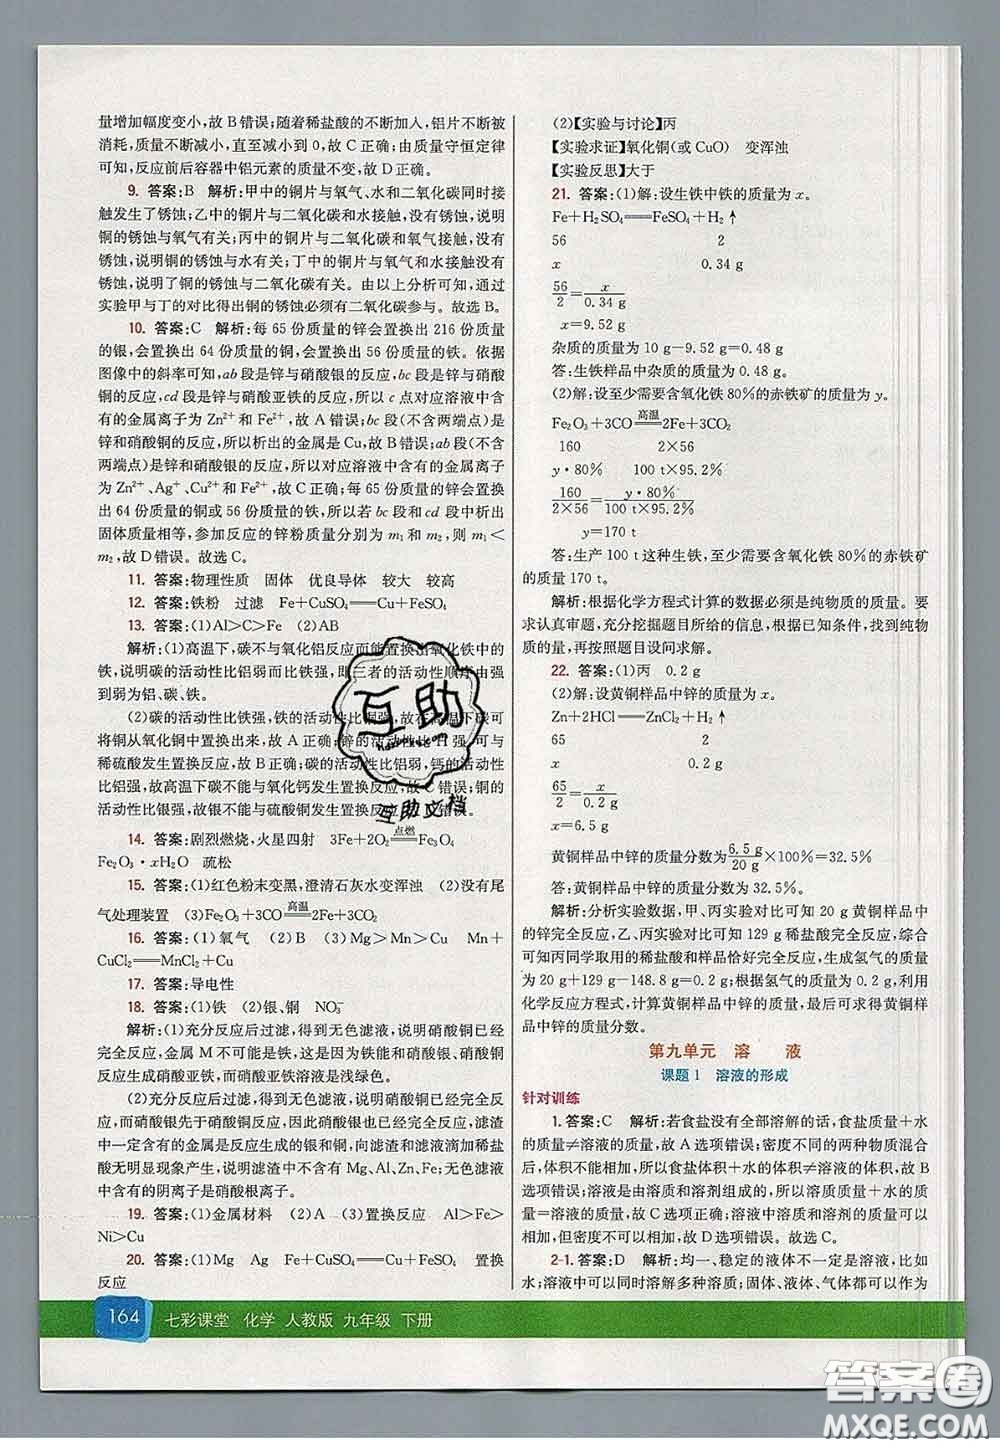 量增加幅度变小,故 B 错误;随着稀盐酸的不断加入,铝片不断被
消耗,质量不断减小,直至减小到 0,故 C 正确;由质量守恒定律
可知,反应前后容器中铝元素的质量不变,故 D 正确。
9. 答案:B 解析:甲中的铜片与氧气、水和二氧化碳同时接
触发生了锈蚀;乙中的铜片与二氧化碳和水接触,没有锈蚀,说明
铜的锈蚀与氧气有关;丙中的铜片与二氧化碳和氧气接触,没有
锈蚀,说明铜的锈蚀与水有关;丁中的铜片与水和氧气接触,没有
锈蚀,说明了铜的锈蚀与二氧化碳有关。由以上分析可知,通过
实验甲与丁的对比得出铜的锈蚀必须有二氧化碳参与。故选 B。
10. 答案:C 解析:每 65 份质量的锌会置换出 216 份质量
的银,会置换出 64 份质量的铜,会置换出 56 份质量的铁。依据
图像中的斜率可知,ab 段是锌与硝酸银的反应,bc 段是锌与硝酸
铜的反应,cd 段是锌与硝酸亚铁的反应,所以 c 点对应溶液中含
有的金属离子为 Zn²⁺ 和 Fe²⁺,故 A 错误;bc 段(不含两端点)是
锌和硝酸铜的反应,所以析出的金属是 Cu,故 B 错误;ab 段(不含
两端点)是锌和硝酸银的反应,所以对应溶液中含有的金属离子
为 Zn²⁺、Ag⁺、Cu²⁺ 和 Fe²⁺,故 C 正确;每 65 份质量的锌会置换
出 64 份质量的铜或 56 份质量的铁,所以若 bc 段和 cd 段中析出
固体质量相等,参加反应的锌粉质量分别为 m₁ 和 m₂,则 m₁<
m₂,故 D 错误。故选 C。
11. 答案:物理性质 固体 优良导体 较大 较高
12. 答案:铁粉 过滤 Fe+CuSO₄══Cu+FeSO₄
13. 答案:(1)Al>C>Fe (2)AB
解析:(1)高温下,碳不与氧化铝反应而能置换出氧化铁中的
铁,说明碳的活动性比铝弱而比铁强,即三者的活动性顺序由强
到弱为铝、碳、铁。
(2)碳的活动性比铁强,铁的活动性比铜强,故在高温下碳可
将铜从氧化铜中置换出来,故 A 正确;锌的活动性比 H 强,可与
稀硫酸发生置换反应,故 B 正确;碳的活动性比铝弱,钙的活动性比铝
强,故高温下碳不能与氧化钙发生置换反应,故 C 错误;铜的
活动性比银强,故银不能与硫酸铜发生置换反应,故 D 错误。
14. 答案:剧烈燃烧,火星四射 3Fe+2O₂═点燃═Fe₃O₄
Fe₂O₃·xH₂O 疏松
15. 答案:(1)红色粉末变黑,澄清石灰水变浑浊 (2)没有尾
气处理装置 (3)Fe₂O₃+3CO═高温═2Fe+3CO₂
16. 答案:(1)氧气 (2)B (3)Mg>Mn>Cu Mn+
CuCl₂══MnCl₂+Cu
17. 答案:导电性
18. 答案:(1)铁 (2)银、铜 NO₃⁻
解析:(1)充分反应后过滤,得到无色滤液,说明硝酸铜已经
完全反应,金属 M 不可能是铁,因为铁能和硝酸银、硝酸铜反
应生成硝酸亚铁,而硝酸亚铁溶液是浅绿色。
(2)充分反应后过滤,得到无色滤液,说明硝酸铜已经完全反
应,而硝酸银先于硝酸铜反应,因此硝酸银也完全反应,滤渣
中一定含有的金属是反应生成的银和铜,向滤渣和滤液滴加稀盐酸
无明显现象产生,说明滤渣中不含有 Mg、Al、Zn、Fe;无色滤液中一定
含有的阴离子是硝酸根离子。
19. 答案:(1)金属材料 (2)A (3)置换反应 Al>Fe>
Ni>Cu
20. 答案:(1)Mg Ag Fe+CuSO₄══Cu+FeSO₄ 置换
反应
(2)【实验与讨论】丙
【实验求证】氧化铜(或 CuO) 变浑浊
【实验反思】大于
21. 答案:(1)解:设生铁中铁的质量为 x。
Fe+H₂SO₄══FeSO₄+H₂↑
56 2
x 0.34 g
56/2=x/0.34 g
x=9.52 g
杂质的质量为 10 g-9.52 g=0.48 g
答:生铁样品中杂质的质量为 0.48 g。
(2)解:设至少需要含氧化铁 80%的赤铁矿的质量为 y。
Fe₂O₃+3CO═高温═2Fe+3CO₂
160 2×56
y·80% 100 t×95.2%
160/2×56=y·80%/100 t×95.2%
y=170 t
答:生产 100 t 这种生铁,至少需要含氧化铁 80%的赤铁矿
的质量 170 t。
解析:根据化学方程式计算的数据必须是纯物质的质量。要
求认真审题,充分挖掘题目所给的信息,根据已知条件,找到纯物
质的质量,再按照题目设问求解。
22. 答案:(1)丙 0.2 g
(2)解:设黄铜样品中锌的质量为 x。
Zn+2HCl══ZnCl₂+H₂↑
65 2
x 0.2 g
65/2=x/0.2 g
x=6.5 g
黄铜样品中锌的质量分数为6.5 g/20 g×100%=32.5%
答:黄铜样品中锌的质量分数为 32.5%。
解析:分析实验数据,甲、丙实验对比可知 20 g 黄铜样品中
的锌完全反应,乙、丙实验对比可知 129 g 稀盐酸完全反应,综合
可知丙同学取用的稀盐酸和样品恰好完全反应,生成氢气的质量
为 20 g+129 g-148.8 g=0.2 g;根据氢气的质量为 0.2 g,利用
化学反应方程式,计算黄铜样品中锌的质量,最后可求得黄铜样
品中锌的质量分数。
第九单元 溶 液
课题 1 溶液的形成
针对训练
1. 答案:C 解析:若食盐没有全部溶解的话,食盐质量+水
的质量≠溶液的质量,故 A 选项错误;密度不同的两种物质混合
后,体积不能相加,所以食盐体积+水的体积≠溶液的体积,故 B
选项错误;溶液是由溶质和溶剂组成的,所以溶质质量+水的质
量=溶液的质量,故 C 选项正确;溶液中溶质和溶剂的质量可以
相加,但密度不能相加,故 D 选项错误。故选 C。
2-1. 答案:D 解析:均一、稳定的液体不一定是溶液,比如
水;溶液中可以同时溶解多种溶质;固体、液体、气体都可以作为
164 七彩课堂 化学 人教版 九年级 下册
互助
互助文档
答案圈
MXQE.COM